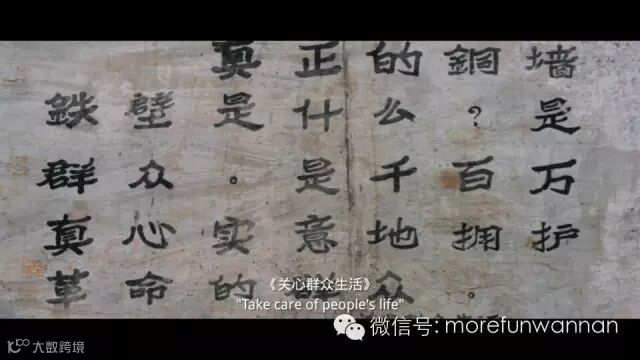 真正的銅墙
鉄壁是什么?是
群众。是千百万
真心实意地拥护
革命的群众。
《关心群众生活》
"Take care of people's life"
微信号: morefunwannan
大数跨境